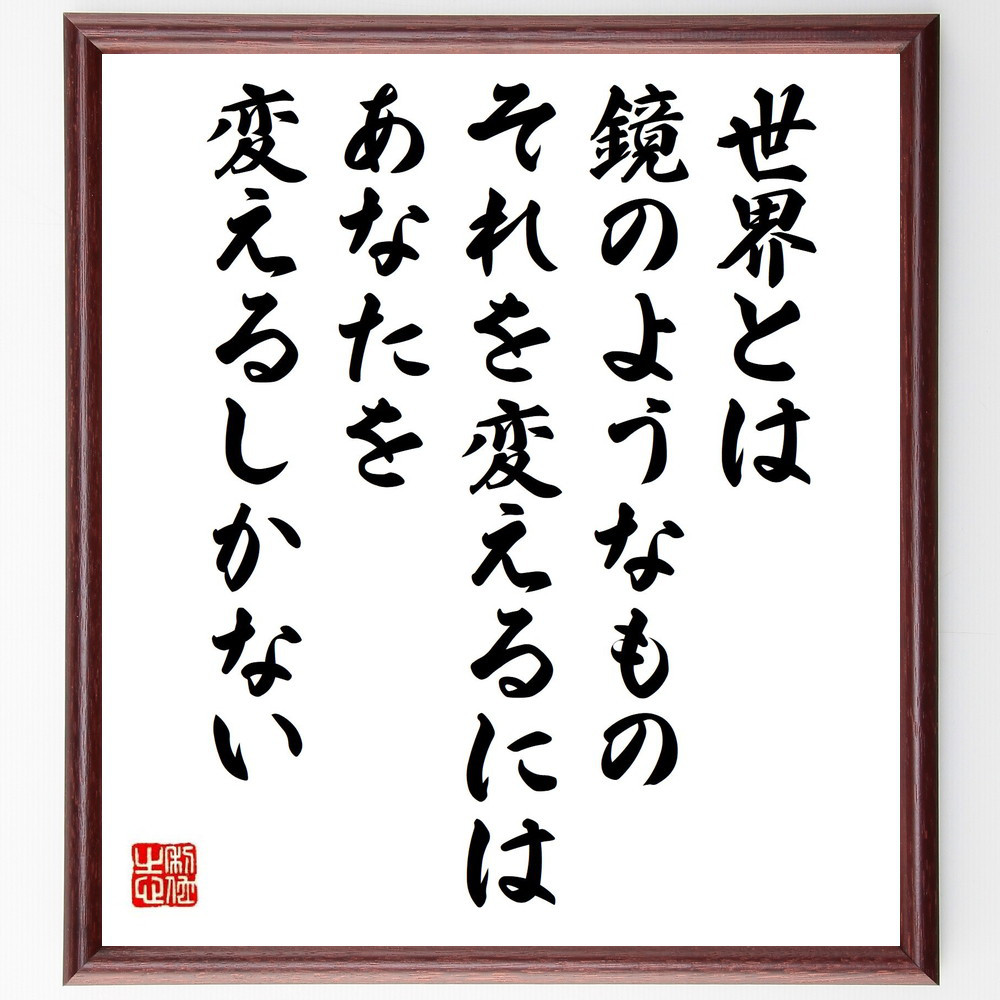 世界とは
鏡のようなもの
それを変えるには
あなたを
変えるしかない